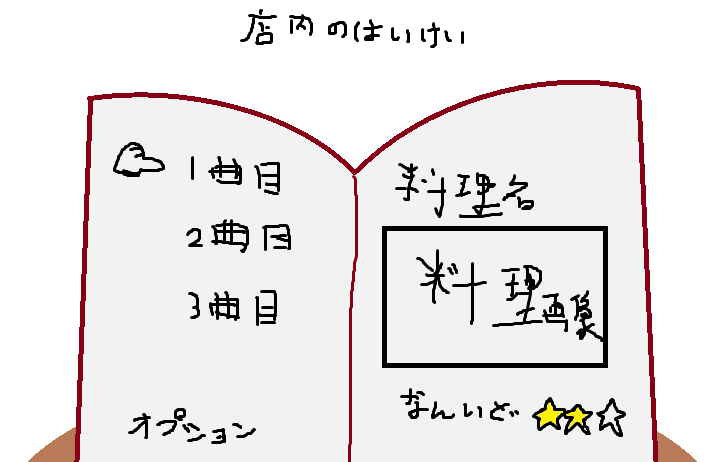 店内のはいけい
1曲目
2曲目
3曲目
オプション
料理名
料理画像
なんいど